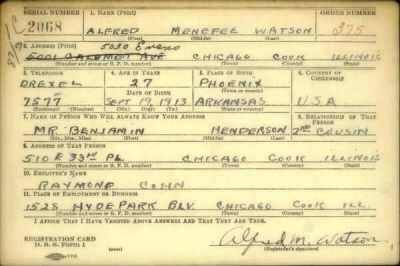 SERIAL NUMBER 1. NAME (Print) ORDER NUMBER
C 2068 ALFRED MENEFEE WATSON 375
(First) (Middle) (Last)
5050 Evans
2. ADDRESS (Print)
6001 CALUMET AVE CHICAGO COOK ILLINOIS
(Number and street or R. F. D. number) (Town) (County) (State)
3. TELEPHONE 4. AGE IN YEARS 5. PLACE OF BIRTH 6. COUNTRY OF CITIZENSHIP
DREXEL 27 PHOENIX
DATE OF BIRTH
7577 SEPT 19, 1913 ARKANSAS U.S.A
(Exchange) (Number) (Mo.) (Day) (Yr.) (State or country)
7. NAME OF PERSON WHO WILL ALWAYS KNOW YOUR ADDRESS 8. RELATIONSHIP OF THAT PERSON
MR. BENJAMIN HENDERSON 2ND COUSIN
(Mr., Mrs., Miss) (First) (Middle) (Last)
9. ADDRESS OF THAT PERSON
510 E 33RD PL. CHICAGO COOK ILLINOIS
(Number and street or R. F. D. number) (Town) (County) (State)
10. EMPLOYER'S NAME
RAYMOND COHN
11. PLACE OF EMPLOYMENT OR BUSINESS
1528 HYDE PARK BLV. CHICAGO COOK ILL.
(Number and street or R. F. D. number) (Town) (County) (State)
I AFFIRM THAT I HAVE VERIFIED ABOVE ANSWERS AND THAT THEY ARE TRUE.
REGISTRATION CARD
D. S. S. FORM 1 Alfred M. Watson
(Registrant's signature)